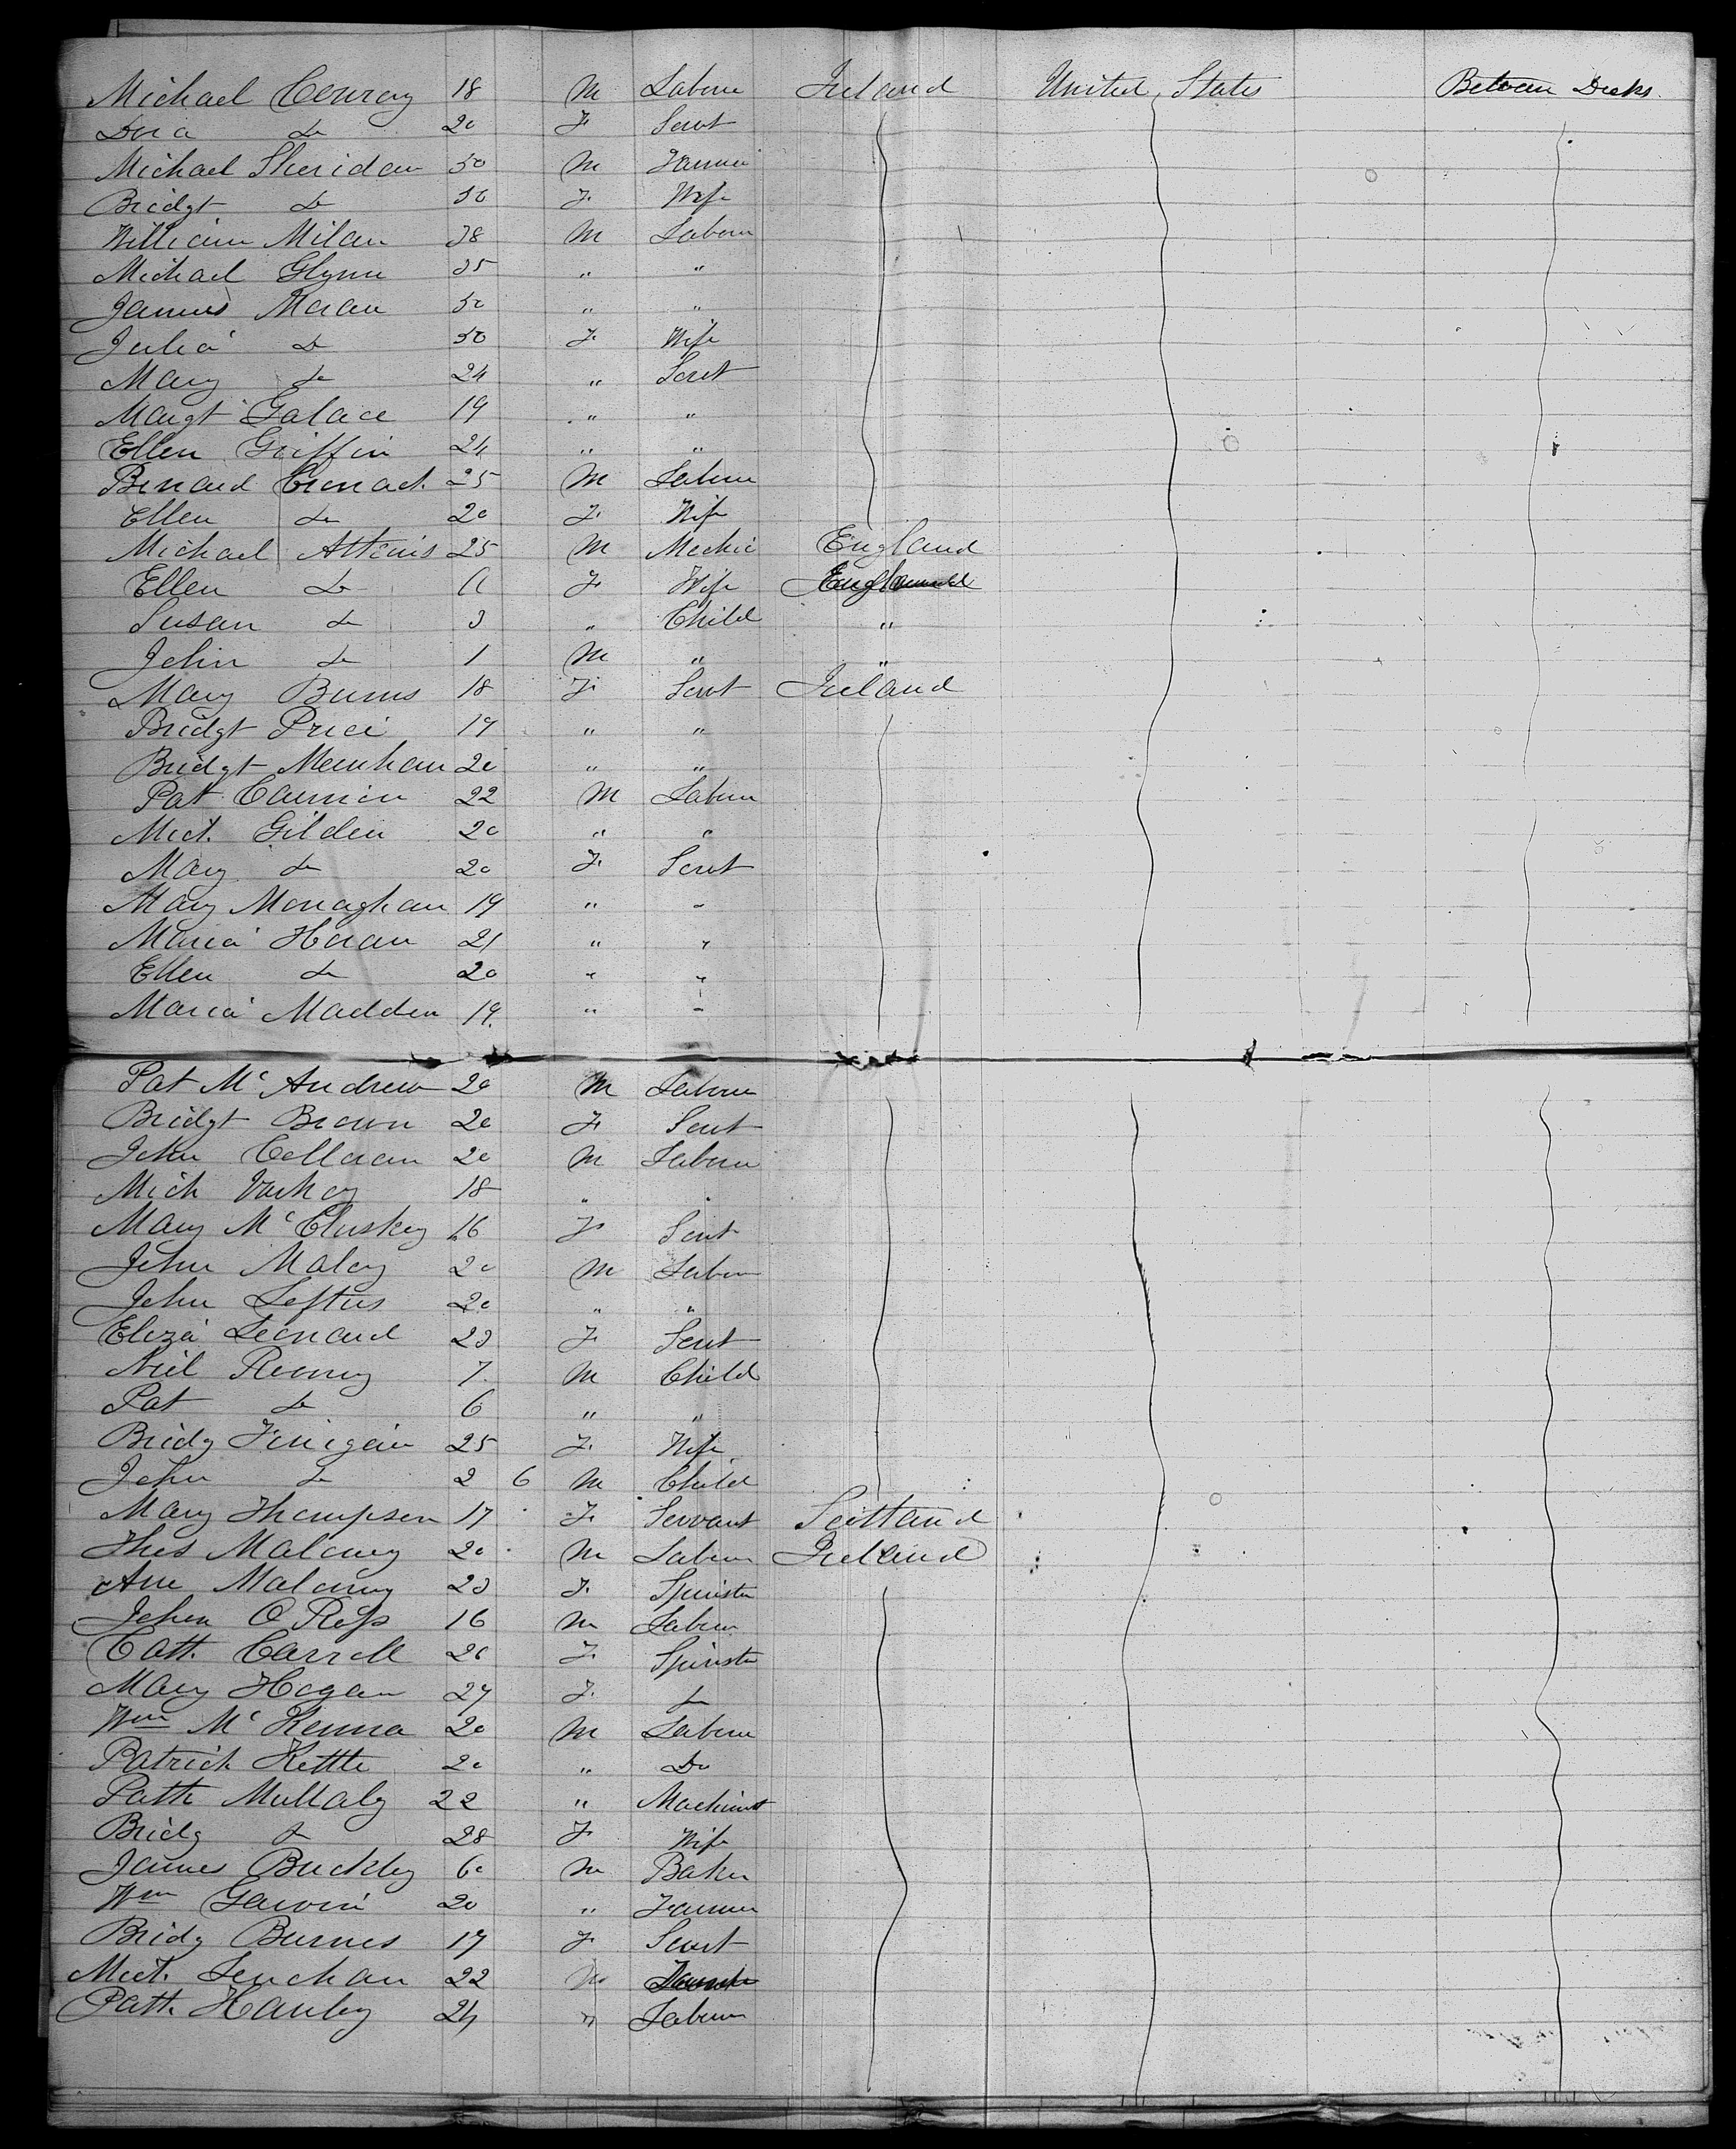 Michael Conroy 18 M Labour Ireland United States Between Decks
Dora Do 20 F Servt
Michael Sheridan 50 M Farmer
Bridgt Do 50 F Wife
William Milan 38 M Labour
Michael Glynn 35 " "
James Moran 50 " "
Julia Do 50 F Wife
Mary Do 24 " Servt
Margt Galace 19 " "
Ellen Griffin 24 " "
Benard 25 M Labour
Ellen Do 20 F Wife
Michael Attkins 25 M Mechic England
Ellen Do F Wife England
Susan Do 3 " Child "
John Do 1 M " "
Mary Burns 18 F Servt Ireland
Bridgt Price 19 " "
Bridgt Meenhan 20 " "
Pat Cannion 22 M Labour
Mich. Gilden 20 " "
Mary Do 20 F Servt
Mary Monaghan 19 " "
Maria Horan 21 " "
Ellen Do 20 " "
Maria Madden 19. " "
Pat Mc Andrew 20 M Labour
Bridgt Brown 20 F Servt
John Colloran 20 M Labour
Mich 18 " "
Mary Mc Cluskey 16 F Servt
John Maloy 20 M Labour
John Loftus 20 " "
Eliza Leonard 23 F Servt
Niel Rooney 7. M Child
Pat Do 6 " "
Bridg Finigain 25 F Wife
John Do 2 6 M Child
Mary Thompson 17 F Servant Scottland
Thos Maloney 20 M Labour Ireland
Ann Maloney 23 F Spinster
John O Ross 16 M Labour
Cath. Carroll 20 F Spinster
Mary Hogan 27 F Do
Wm Mc Kenna 20 M Labour
Patrick Kettle 20 " Do
Patk Mullaly 22 " Machinist
Bridg Do 28 F Wife
James Buckley 60 M Baker
Wm Garvin 20 " Farmer
Bridg Burnes 17 F Servt
Mich. Lenehan 22 M
Patk. Hanley 24 " Labour